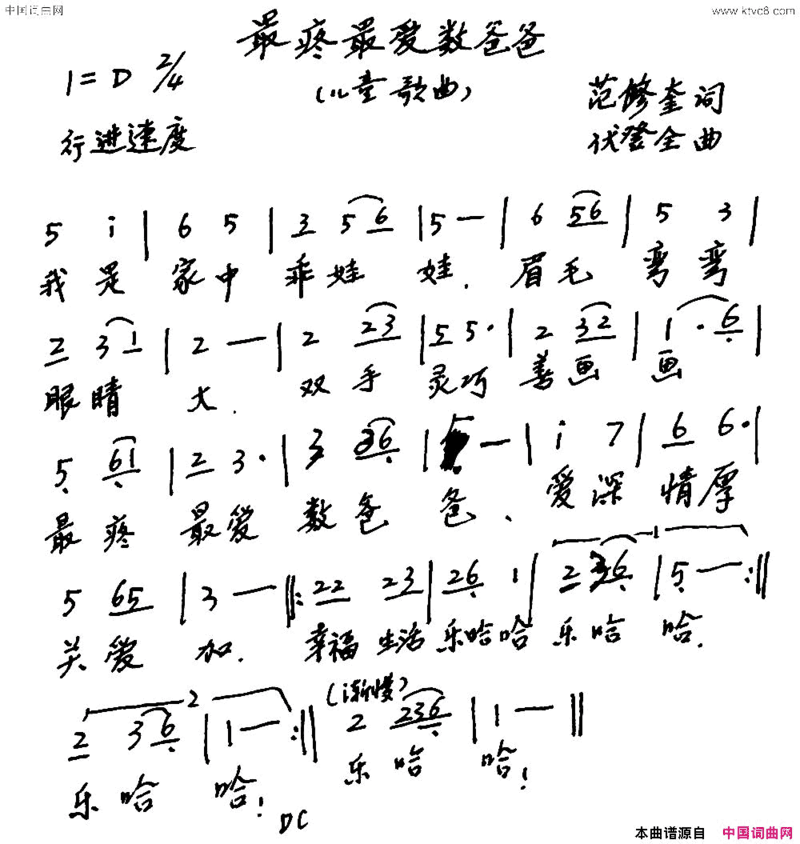 中国词曲网
www.ktvc8.com
最疼最爱数爸爸
1=D 2/4
(儿童歌曲)
范修奎词
行进速度
伏登全曲
5 i | 6 5 | 3 56 | 5 — | 6 56 | 5 3 |
我是 家中 乖娃 娃. 眉毛 弯弯
2 31 | 2 — | 2 23 | 5 5· | 2 32 | 1 · 6 |
眼睛 大. 双手 灵巧 善画 画
5 61 | 2 3· | 3 36 | 5 — | i 7 | 6 6· |
最疼 最爱 数爸 爸、 爱深 情厚
5 65 | 3 — ‖: 22 23 | 26 1 | 2 36 | 5 — :‖
关爱 加. 幸福 生活 乐哈哈 乐哈 哈.
2
(渐慢)
2 36 | 1 — :‖ 2 236 | 1 — ‖
乐哈 哈! 乐哈 哈!
DC
本曲谱源自 中国词曲网